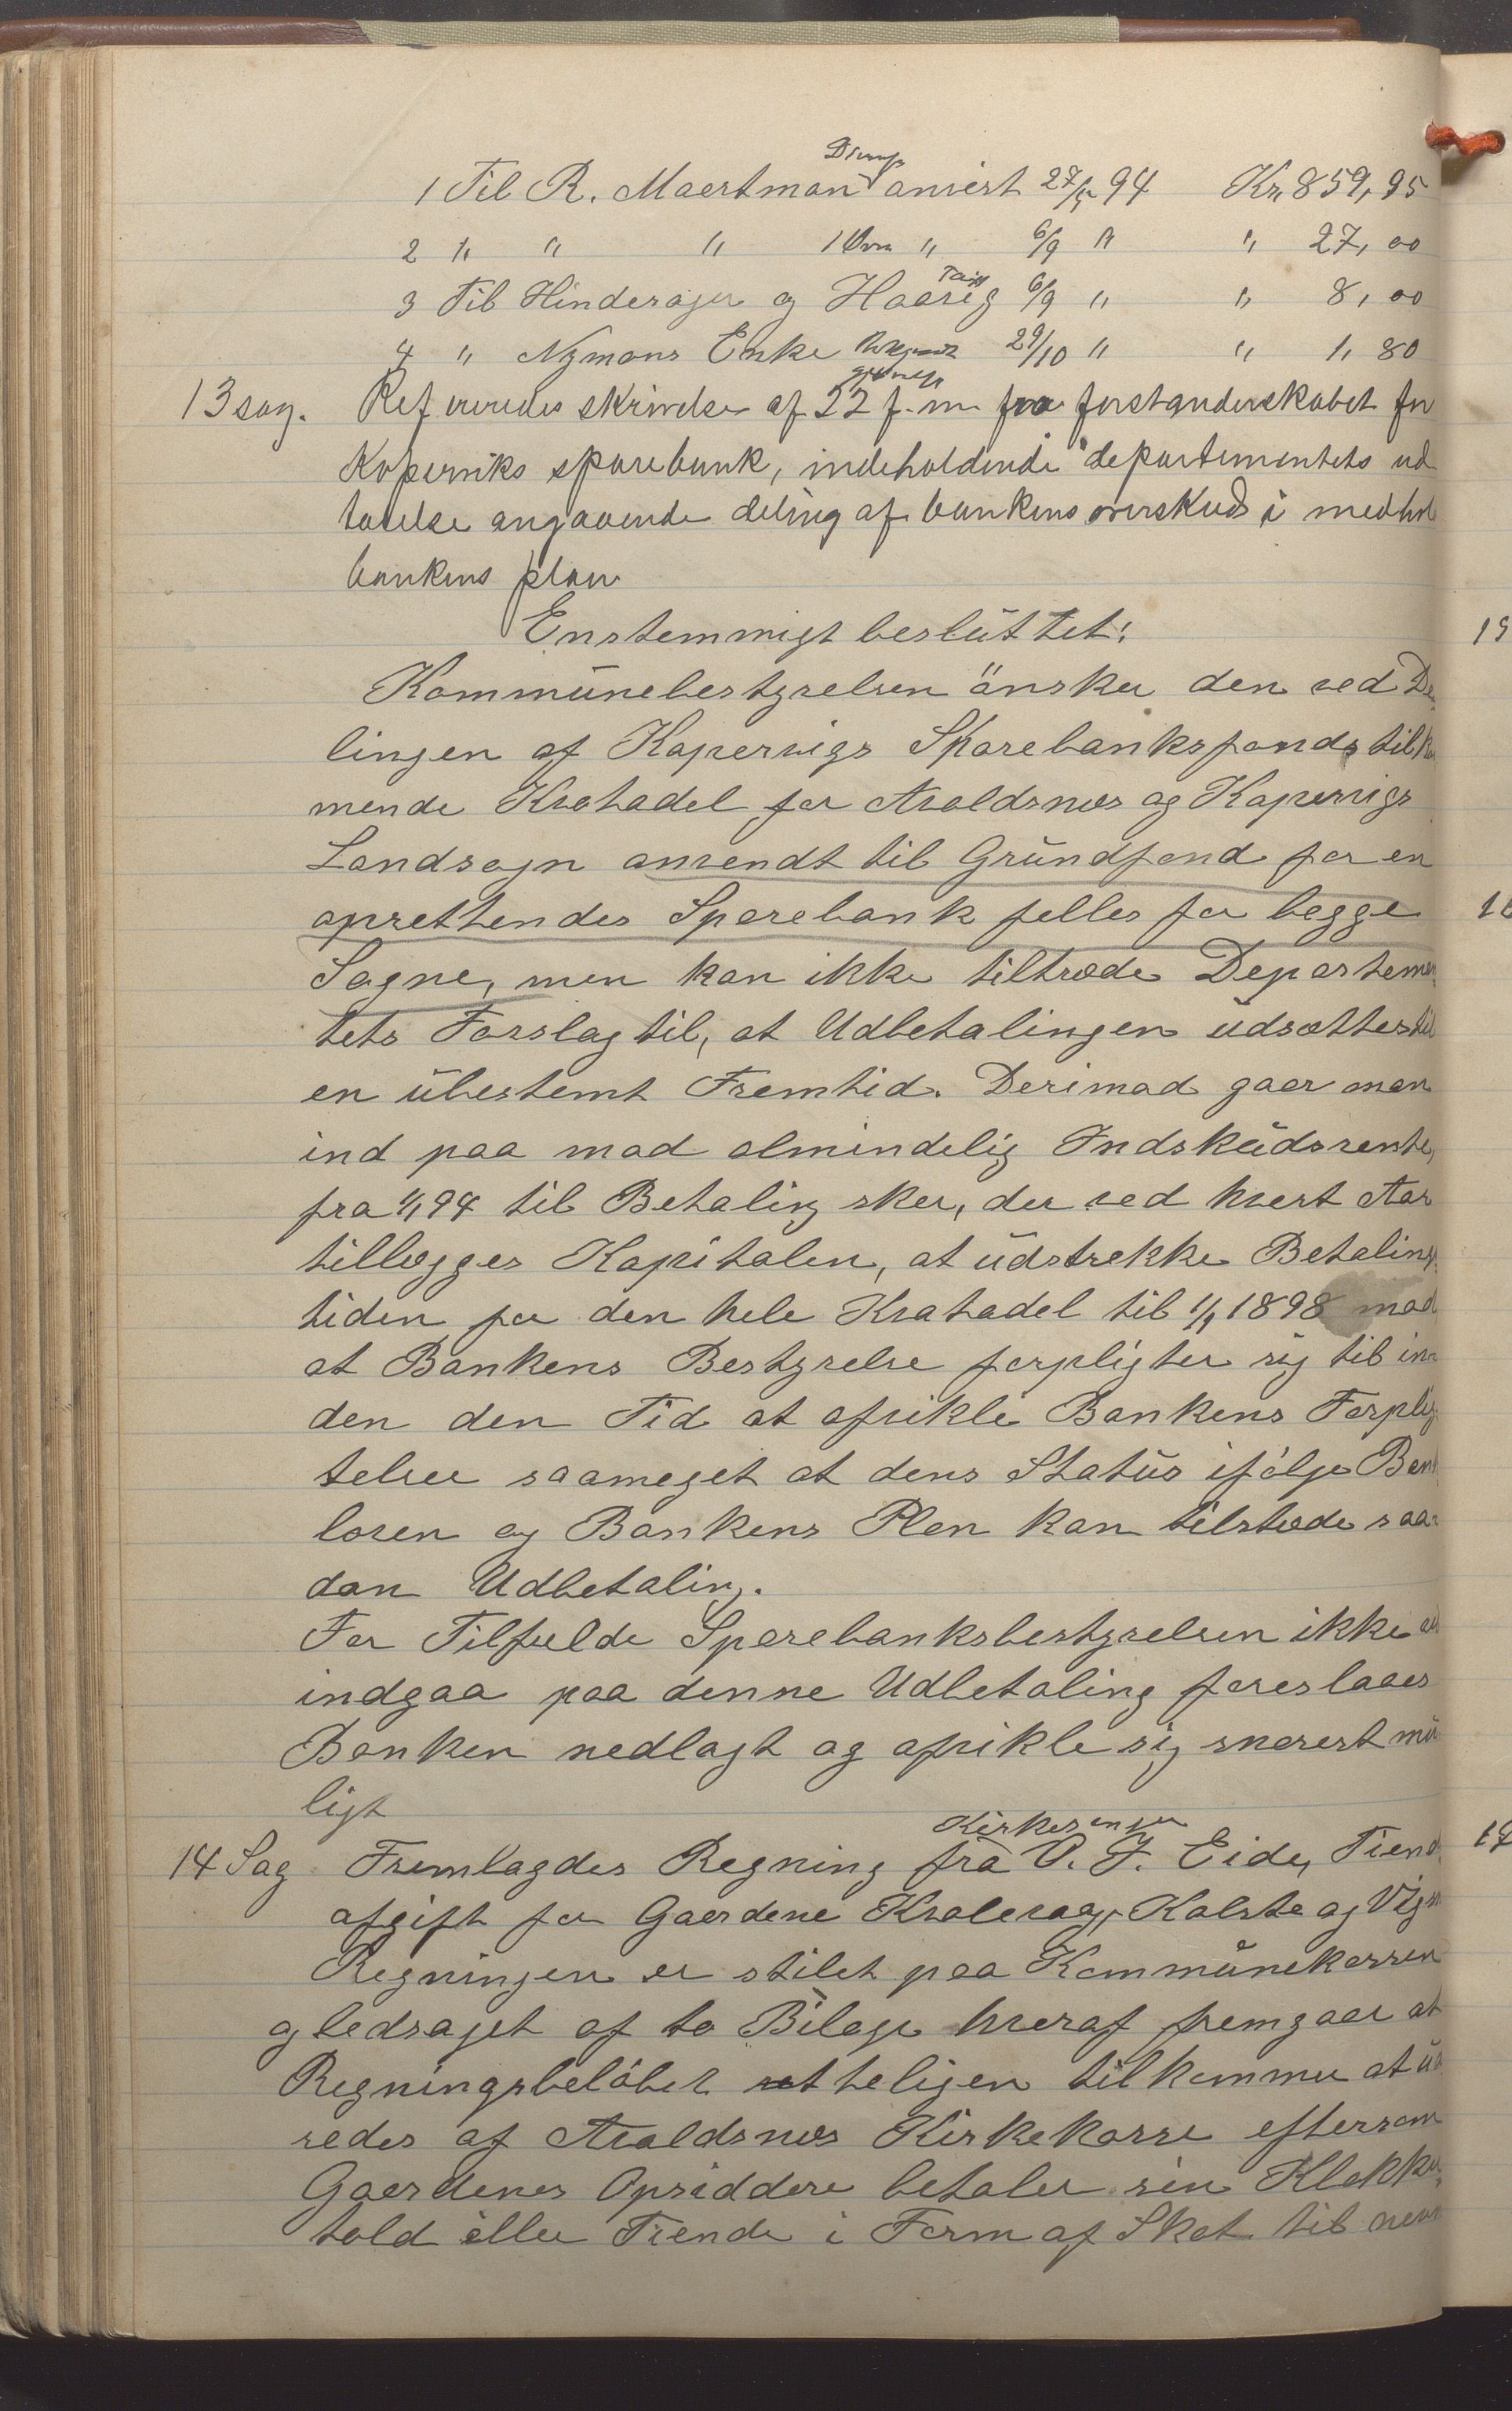 1 Til R. Maertman anvist 27/5 94 Kr 859,95
2 " " " 1 Ovn " 6/9 " " 27,00
3 Til Hinderager og Haarig 6/9 " " 8,00
4 " Nymans Enke 29/10 " " 1,80
13 sag. Refereredes skrivelse af 22 f.m. fra forstanderskabet for
Koperviks sparebank, indeholdende departementets ud
talelse angaaende deling af bankens overskud i medhol
bankens plan
Enstemmigt besluttet:
Kommunebestyrelsen ønsker den ved De
lingen af Kopervigs Sparebanksfonds tilkom
mende Kvotadel for Avaldsnes og Kopervigs
Landsogn anvendt til Grundfond for en
oprettendes Sparebank felles for begge
Sogne, men kan ikke tiltræde Departemen
tets Forslag til, at Udbetalingen udsættes til
en ubestemt Fremtid. Derimod gaar man
ind paa mod almindelig Indskudsrente,
fra 1/1 94 til Betaling sker, der ved hvert Aar
tillægges Kapitalen, at udstrekke Betalings
tiden for den hele Kvotadel til 1/1 1898 mod
at Bankens Bestyrelse forpligter sig til in
den den Tid at afvikle Bankens Forplig
telser saameget at dens Status ifølge Bank
loven og Bankens Plan kan tilstæde saa
dan Udbetaling.
For Tilfælde Sparebanksbestyrelsen ikke
indgaa paa denne Udbetaling foreslaaes
Banken nedlagt og afvikle sig snarest mu
ligt
Kirkesanger
14 Sag Fremlagdes Regning fra O. J. Eide, Tiend
afgift for Gaardene Kvalevaag, Kolstø og Vigsn
Regningen er stilet paa Kommunekassen
og ledsaget af to Bilage hvoraf fremgaar at
Regningsbeløbet retteligen tilkommer at ud
redes af Avaldsnes Kirkekasse eftersom
Gaardenes Opsiddere betaler sin Klokker
told eller Tiende i Form af Skat til nevn
15
16
17